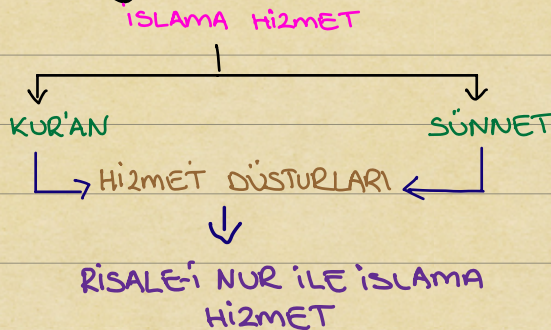 İSLAMA HİZMET
KUR'AN
SÜNNET
HİZMET DÜSTURLARI
RİSALE-İ NUR İLE İSLAMA
HİZMET